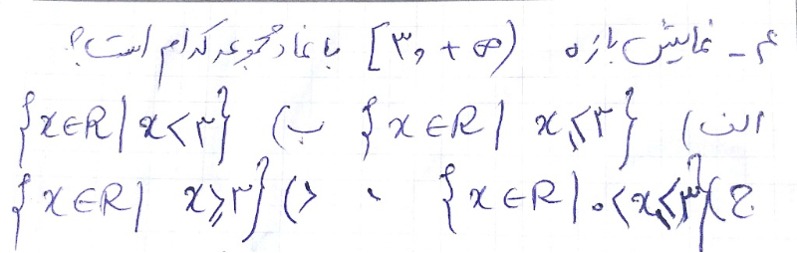 ۴ـ نمایش بازه [۳, +∞) با نماد مجموعه کدام است؟
الف) {x∈R | x≤۳} ب) {x∈R | x<۳}
ج) {x∈R | ۰<x≤۳} د) {x∈R | x≥۳}